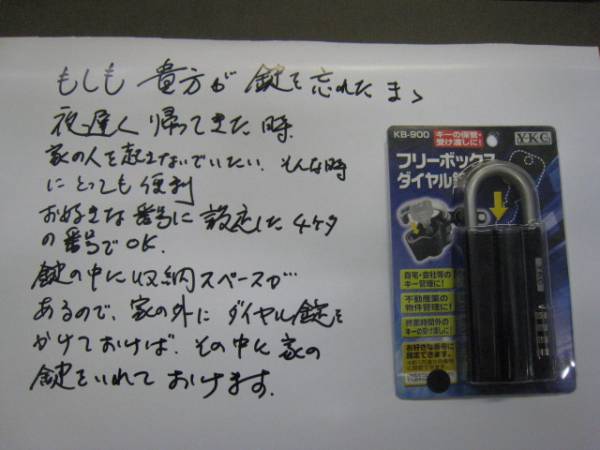 もしも 貴方が 鍵を忘れたまゝ
夜遅く 帰ってきた時
家の人を起さないでいたい。そんな時
にとっても便利
お好きな番号に設定した4ケタ
の番号でOK.
鍵の中に収納スペースが
あるので、家の外にダイヤル錠を
かけておけば、その中に家の
鍵をいれておけます。
KB-900
キーの保管・
受け渡しに!
YKC
フリーボックス
ダイヤル
自宅・会社等の
キー管理に!
不動産業の
物件管理に!
終業時間外の
キーの受け渡しに!
お好きな番号に
設定できます。